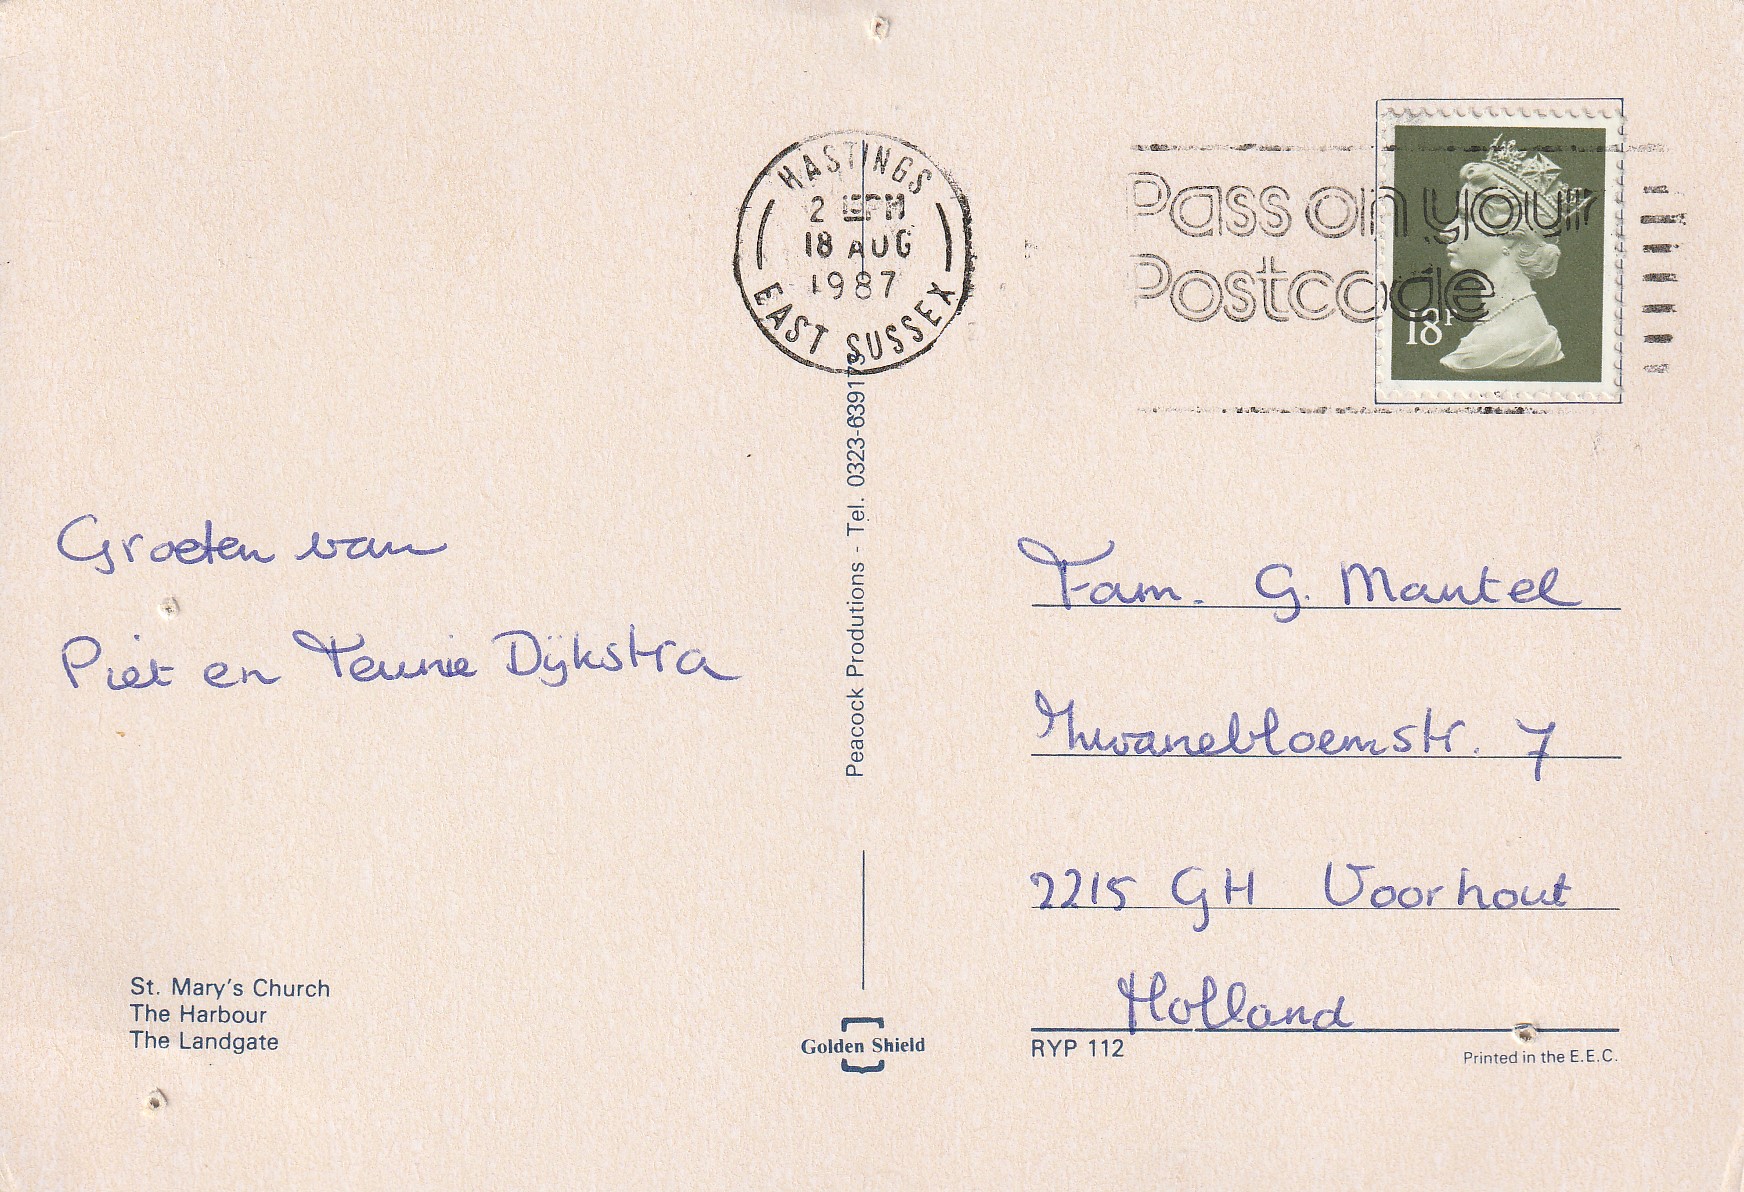 HASTINGS
2 15 PM
18 AUG
1987
EAST SUSSEX
Pass on your
Postcode
18P
Groeten van
Piet en Teunie Dijkstra
Peacock Produtions - Tel. 0323-639173
Fam. G. Mantel
Zwanebloemstr. 7
2215 GH Voorhout
Holland
St. Mary's Church
The Harbour
The Landgate
Golden Shield
RYP 112
Printed in the E.E.C.